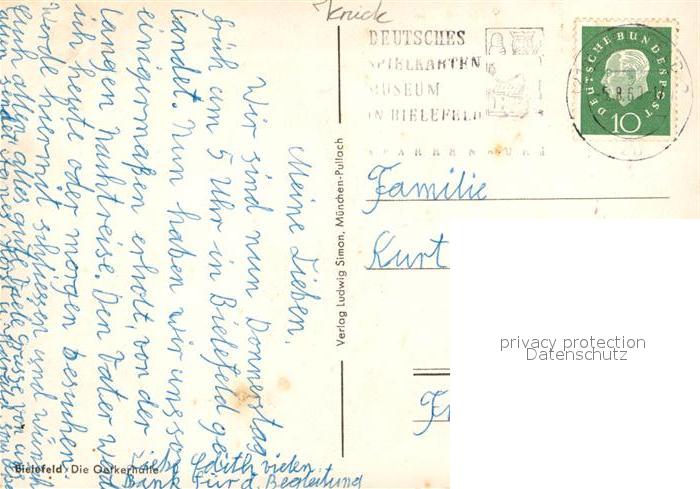 Meine Lieben.
Wir sind nun Donnerstag
früh um 5 Uhr in Bielefeld ge
landet. Nun haben wir uns so
einigermaßen erholt, von der
langen Nachtreise. Den Vater werd
ich heute oder morgen besuchen.
Werde hiermit schliesen und wünsch
Euch allen alles gute. Viele Grüsse von uns
Liebe Edith vielen
Dank für d. Begleitung
Bielefeld Die Oetkerhalle
Verlag Ludwig Simon, München-Pullach
knick
DEUTSCHES
SPIELKARTEN
MUSEUM
IN BIELEFELD
SPARRENBURG
DEUTSCHE BUNDESPOST
10
Familie
Kurt
privacy protection
Datenschutz